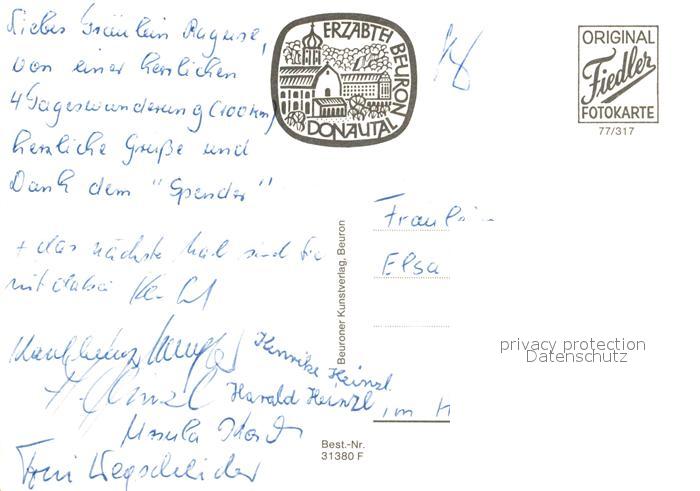 Liebes Fräulein
von einer herrlichen
4 Tageswanderung (100 km)
herzliche Grüße und
Dank dem "Spender"
+ das nächste Mal sind Sie
mit dabei
Karlheinz
Henrike Heinzl
Harald Heinzl
Ursula
Toni Wegscheider
ERZABTEI BEURON
DONAUTAL
ORIGINAL
Fiedler
FOTOKARTE
77/317
Fräulein
Elsa
im
Beuroner Kunstverlag, Beuron
Best.-Nr.
31380 F
privacy protection
Datenschutz